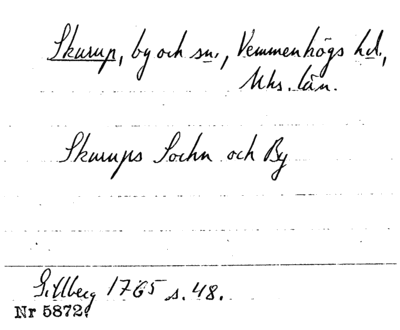 Skurup, by och sn., Vemmenhögs hd.,
Mhs. län.
Skurups Sochn och By
Gillberg 1765 s. 48.
Nr 5872.